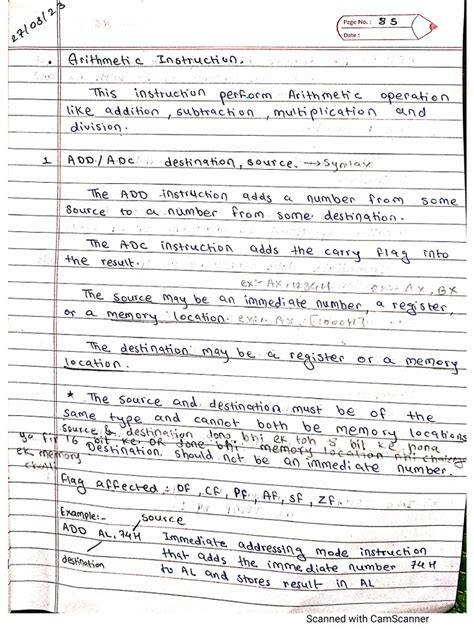 27/03/23
Page No.: 85
Date:
Arithmetic Instruction.
This instruction perform Arithmetic operation
like addition, subtraction, multiplication and
division.
1 ADD/ADC destination, source. → Syntax
The ADD instruction adds a number from some
source to a number from some destination.
The ADC instruction adds the carry flag into
the result.
ex:- AX,1234H ex:- AX, BX
The source may be an immediate number, a register,
or a memory location. ex:- AX, [1000H]
The destination may be a register or a memory
location.
* The source and destination must be of the
same type and cannot both be memory locations
source & destination dono bhi ek toh 8 bit ke hona
ya fir 16 bit ke. OR dono bhi memory location nhi
ek memory
Destination should not be an immediate number.
Flag affected: OF, CF, PF, AF, SF, ZF
Example:-
source
ADD AL, 74H Immediate addressing mode instruction
that adds the immediate number 74H
destination to AL and stores result in AL
Scanned with CamScanner